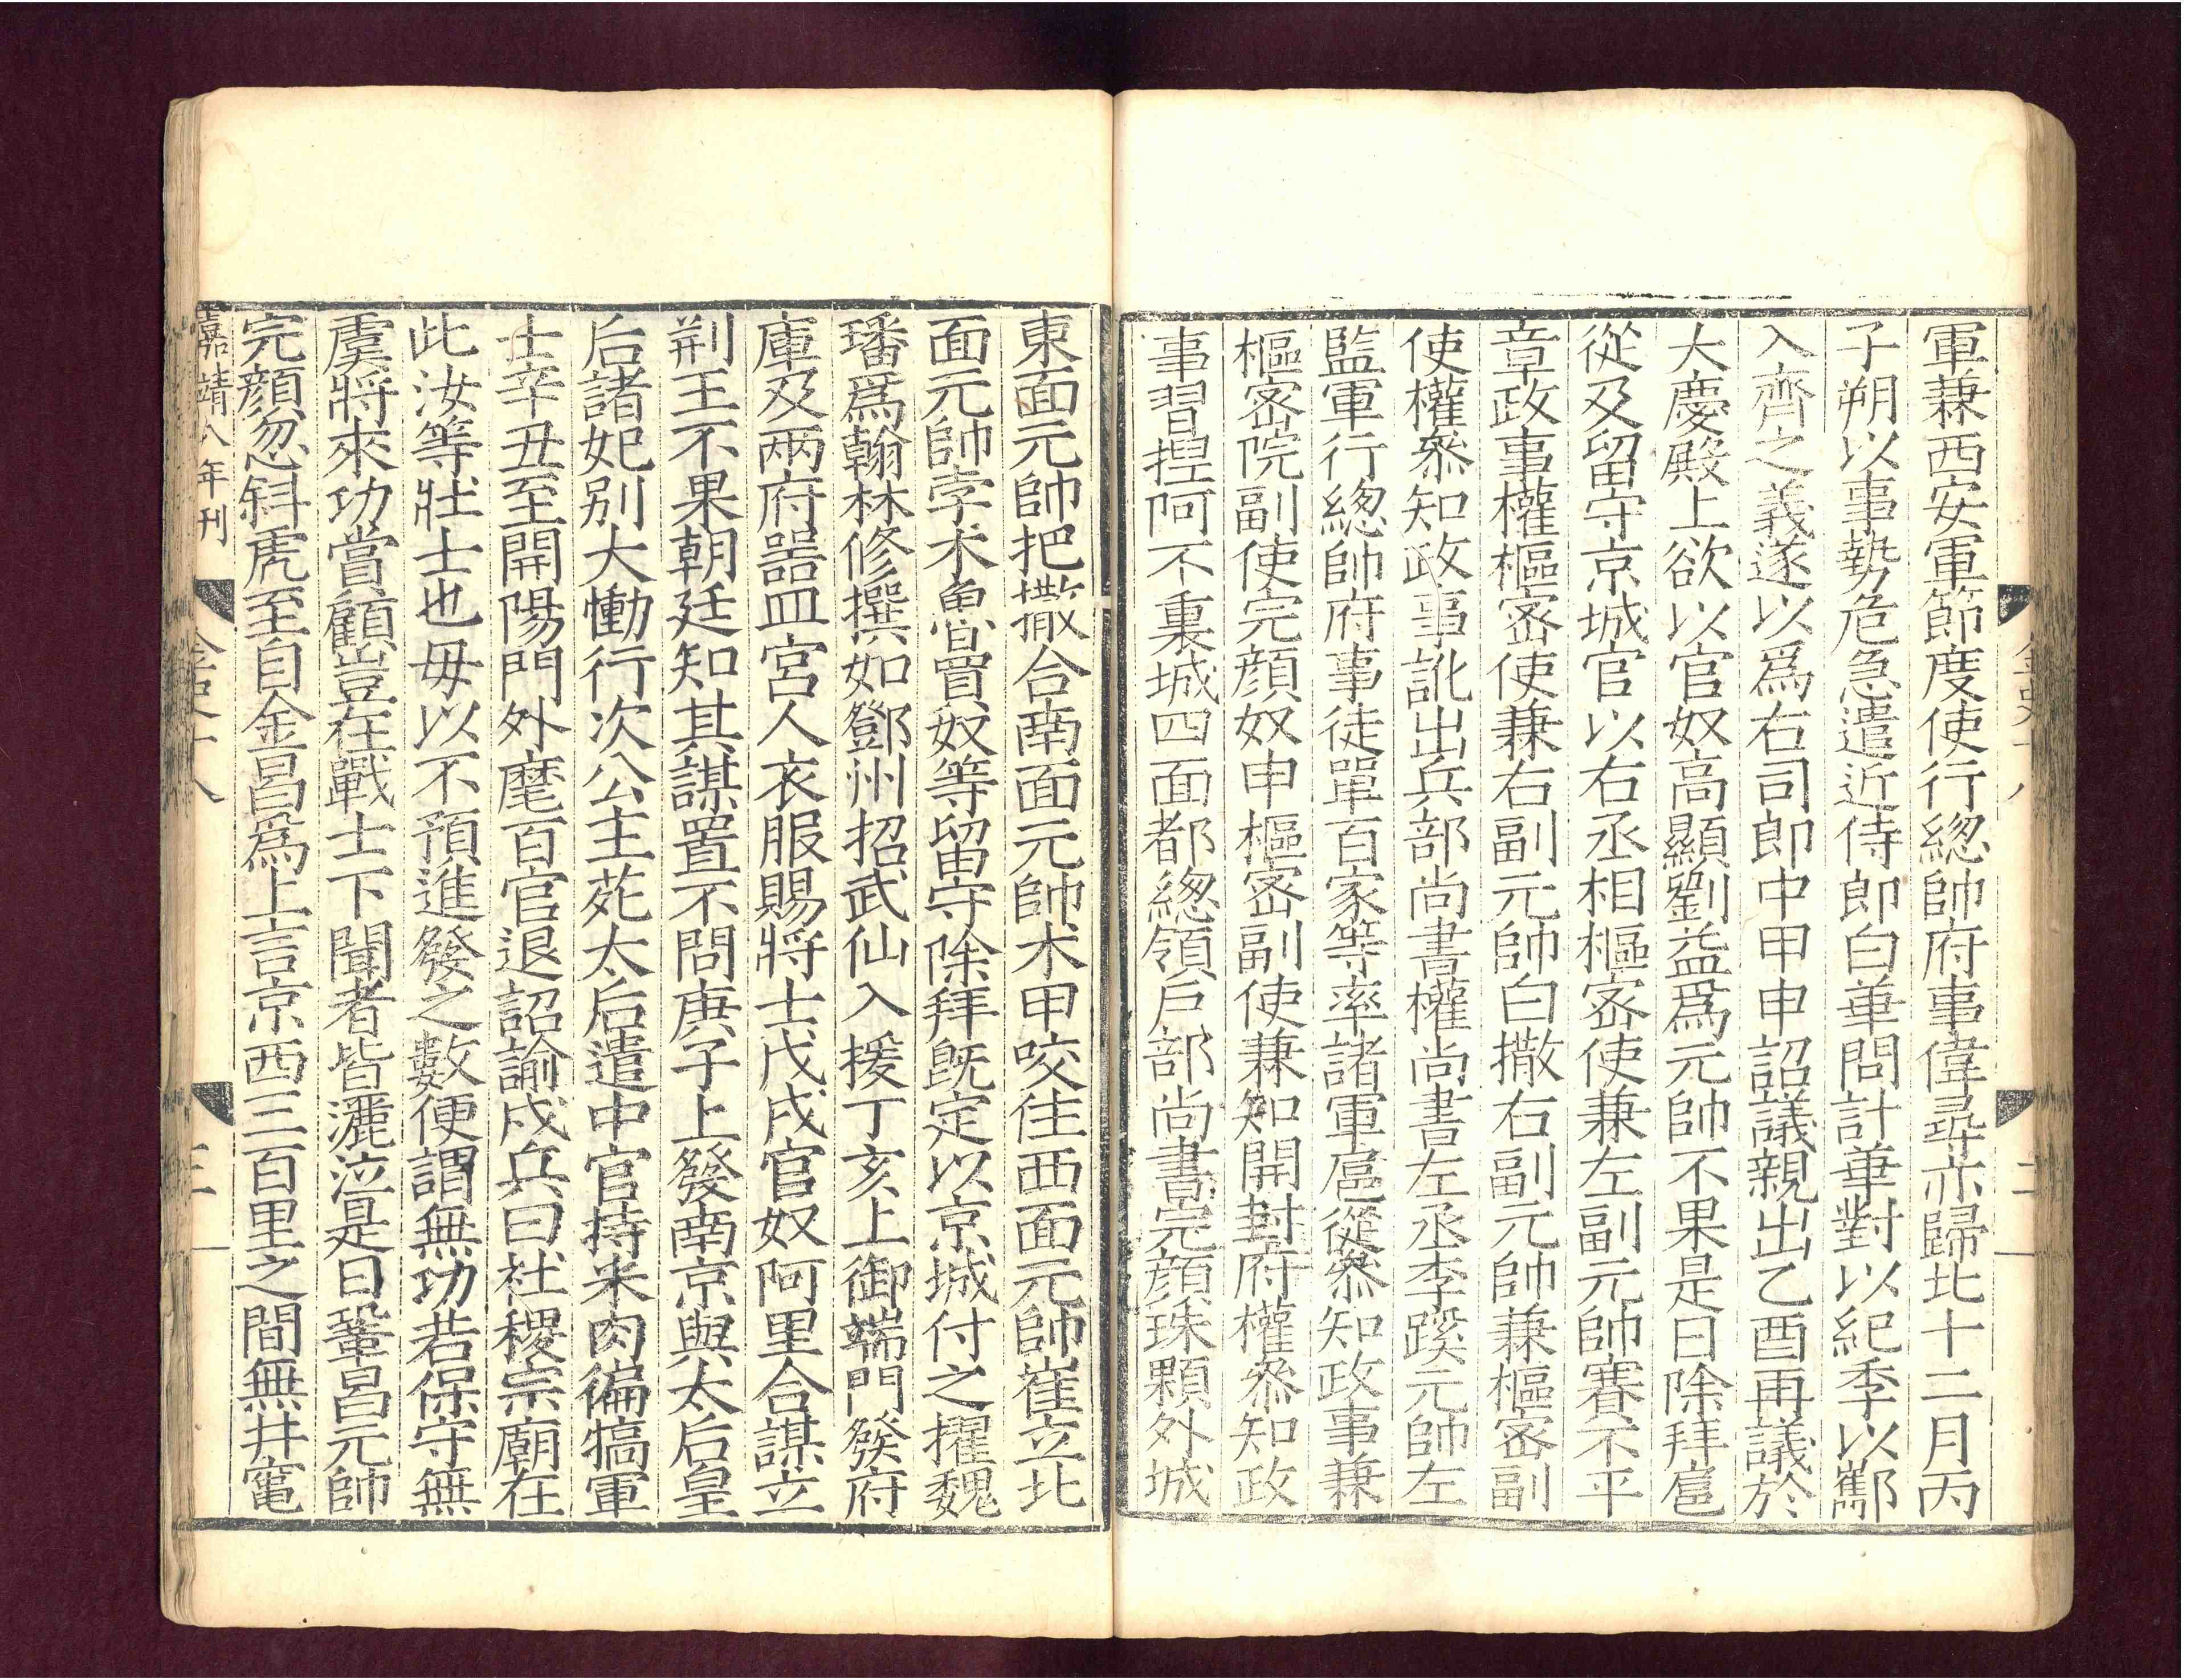 軍兼西安軍節度使行緫帥府事偉尋亦歸北十二月丙
子朔以事勢危急遣近侍郎白華問計華對以紀季以酅
入齊之義遂以爲右司郎中甲申詔議親出乙酉再議於
大慶殿上欲以官奴高顯劉益爲元帥不果是日除拜扈
從及留守京城官以右丞相樞宻使兼左副元帥賽不平
章政事權樞宻使兼右副元帥白撒右副元帥兼樞宻副
使權叅知政事訛出兵部尚書權尚書左丞李蹊元帥左
監軍行緫帥府事徒單百家等率諸軍扈從叅知政事兼
樞宻院副使完顔奴申樞宻副使兼知開封府權叅知政
事習揑阿不裏城四面都緫領戶部尚書完顔珠顆外城
二
東面元帥把撒合南面元帥术甲咬住西面元帥崔立北
面元帥孛术魯買奴等留守除拜旣定以京城付之擢魏
璠爲翰林修撰如鄧州招武仙入援丁亥上御端門發府
庫及兩府噐皿宮人衣服賜將士戊戌官奴阿里合謀立
荆王不果朝廷知其謀置不問庚子上發南京與太后皇
后諸妃別大慟行次公主苑太后遣中官持米肉徧犒軍
士辛丑至開陽門外麾百官退詔諭戍兵曰社稷宗廟在
此汝等壯士也毋以不預進發之數便謂無功若保守無
虞將來功賞顧豈在戰士下聞者皆灑泣是日鞏昌元帥
完顔忽斜虎至自金昌爲上言京西三百里之間無井竃
嘉靖八年刊
金史十八
三